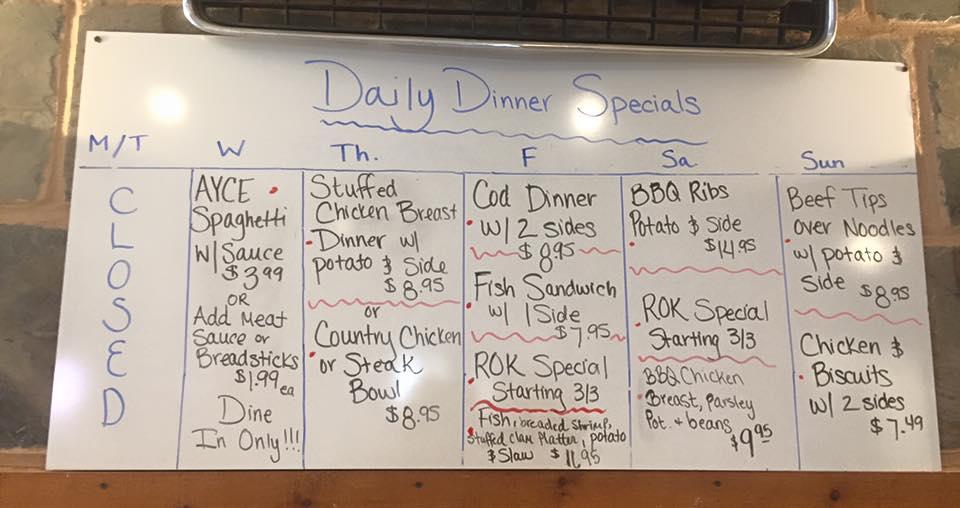 Daily Dinner Specials
M/T
C
L
O
S
E
D
W
AYCE
Spaghetti
W/ Sauce
$3.99
OR
Add Meat
Sauce or
Breadsticks
$1.99
ea
Dine
In Only!!!
Th.
Stuffed
Chicken Breast
Dinner w/
potato & Side
$8.95
or
Country Chicken
or Steak
Bowl
$8.95
F
Cod Dinner
w/ 2 sides
$8.95
Fish Sandwich
w/ 1 Side
$7.95
ROK Special
Starting 3/3
Fish, breaded shrimp,
Stuffed Clam Platter, potato
& Slaw $11.95
Sa
BBQ Ribs
Potato & Side
$14.95
ROK Special
Starting 3/3
BBQ Chicken
Breast, Parsley
Pot. + beans
$9.95
Sun
Beef Tips
over Noodles
w/ potato &
Side $8.95
Chicken &
Biscuits
w/ 2 sides
$7.49